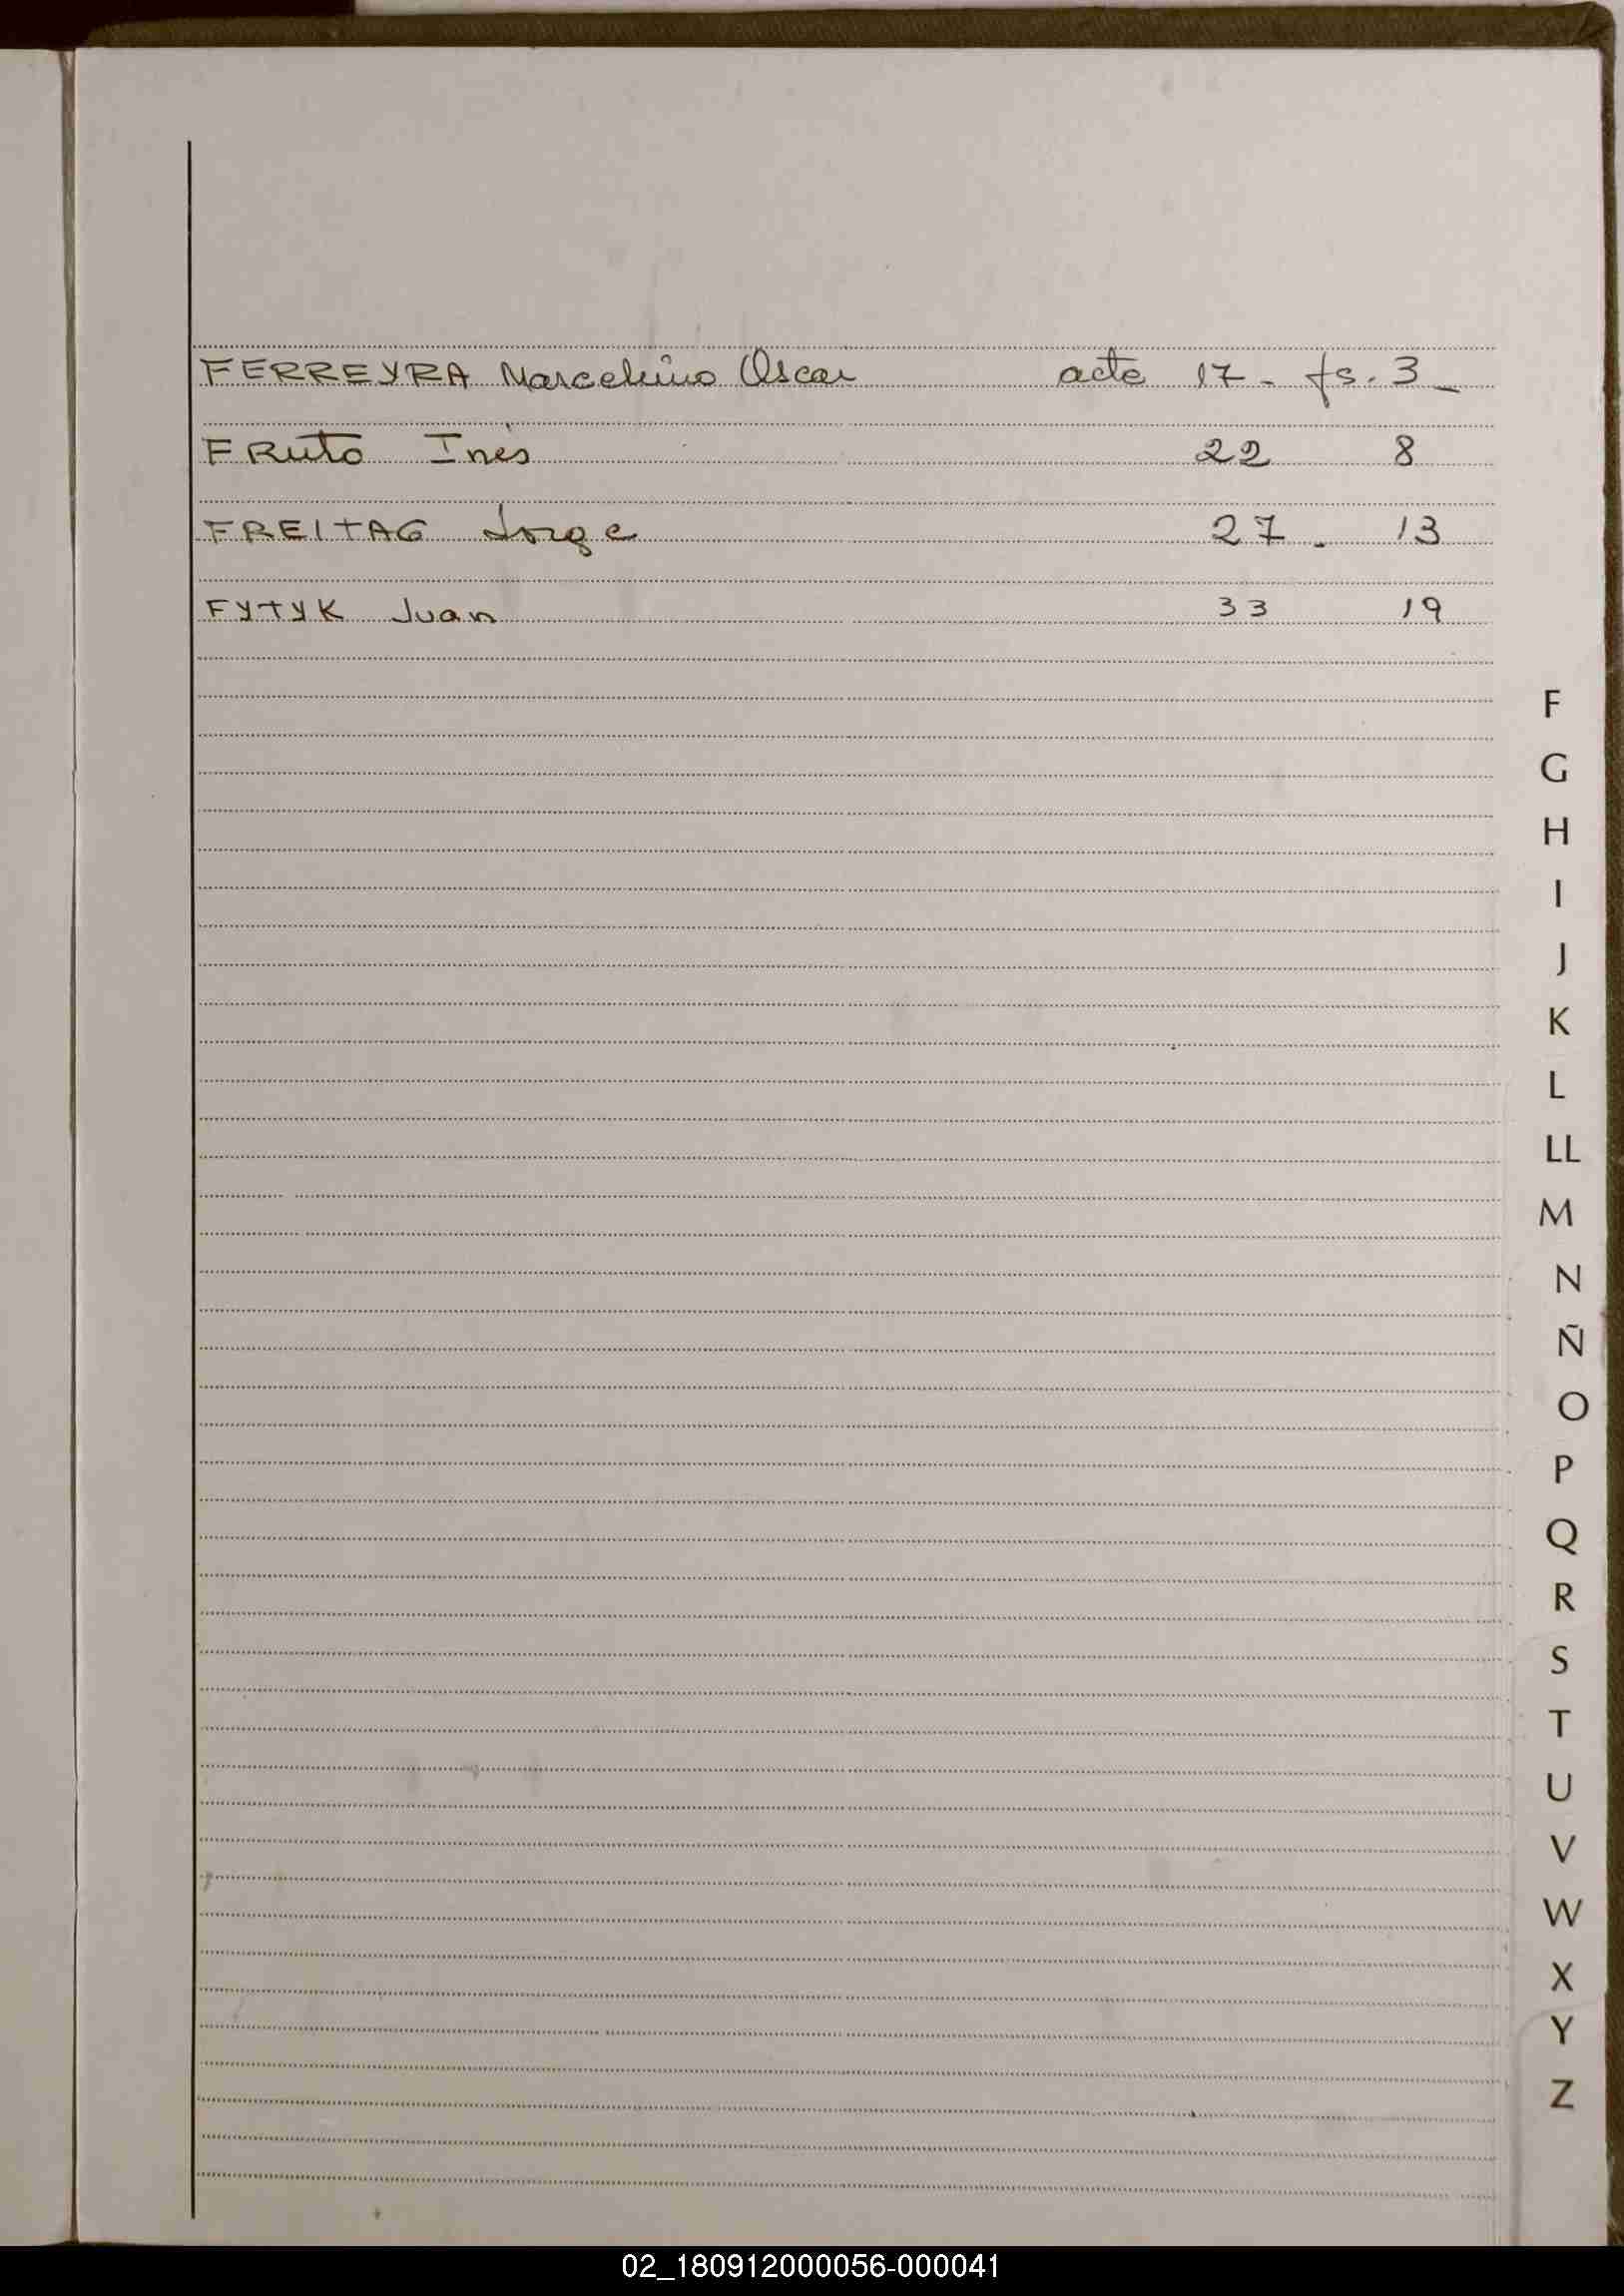 FERREYRA Marcelino Oscar acta 17 - fs. 3 -
FRUTO Inés 22 8
FREITAG Jorge 27 - 13
FYTYK Juan 33 19
F
G
H
I
J
K
L
LL
M
N
Ñ
O
P
Q
R
S
T
U
V
W
X
Y
Z
02_180912000056-000041